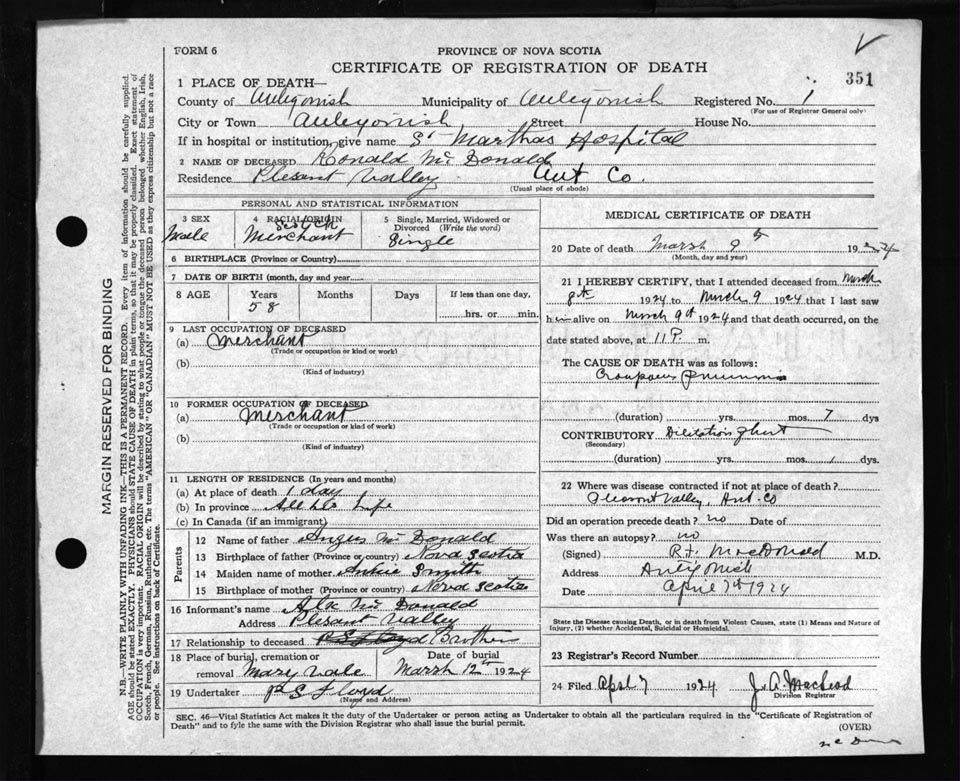 FORM 6
PROVINCE OF NOVA SCOTIA
CERTIFICATE OF REGISTRATION OF DEATH
351
1 PLACE OF DEATH—
County of Antigonish Municipality of Antigonish Registered No. 1
(For use of Registrar General only)
City or Town Antigonish Street House No.
If in hospital or institution, give name St Marthas Hospital
2 NAME OF DECEASED Ronald Mc Donald
Residence Plesant Valley Ant Co.
(Usual place of abode)
PERSONAL AND STATISTICAL INFORMATION
3 SEX
Male
4 RACIAL ORIGIN
Scotch
Merchant
5 Single, Married, Widowed or Divorced (Write the word)
Single
6 BIRTHPLACE (Province or Country)
7 DATE OF BIRTH (month, day and year
8 AGE Years Months Days If less than one day,
58 hrs. or min.
9 LAST OCCUPATION OF DECEASED
(a) Merchant
(Trade or occupation or kind or work)
(b)
(Kind of industry)
10 FORMER OCCUPATION OF DECEASED
(a) Merchant
(Trade or occupation or kind of work)
(b)
(Kind of industry)
11 LENGTH OF RESIDENCE (In years and months)
(a) At place of death 1 day
(b) In province All his Life
(c) In Canada (if an immigrant)
Parents
12 Name of father Angus Mc Donald
13 Birthplace of father (Province or country) Nova Scotia
14 Maiden name of mother Smith
15 Birthplace of mother (Province or country) Nova Scotia
16 Informant's name Alx Mc Donald
Address Plesant Valley
17 Relationship to deceased Brother
18 Place of burial, cremation or removal Mary Vale
Date of burial
Marsh 12th 1924
19 Undertaker P S Floyd
(Name and Address)
MEDICAL CERTIFICATE OF DEATH
20 Date of death Marsh 9th 1924
(Month, day and year)
21 I HEREBY CERTIFY, that I attended deceased from March
8th 1924 to March 9 1924 that I last saw
him alive on March 9th 1924 and that death occurred, on the
date stated above, at 11 P. m.
The CAUSE OF DEATH was as follows:
Croupous Pneumonia
(duration) yrs. mos. 7 dys
CONTRIBUTORY Dilitation heart
(Secondary)
(duration) yrs. mos. dys.
22 Where was disease contracted if not at place of death?
Pleasant Valley, Ant. Co
Did an operation precede death? no Date of
Was there an autopsy? no
(Signed) R.F. MacDonald M.D.
Address Antigonish
Date April 7th 1924
State the Disease causing Death, or in death from Violent Causes, state (1) Means and Nature of
Injury, (2) whether Accidental, Suicidal or Homicidal.
23 Registrar's Record Number
24 Filed April 7 1924 J. A. MacLeod
Division Registrar
SEC. 46—Vital Statistics Act makes it the duty of the Undertaker or person acting as Undertaker to obtain all the particulars required in the "Certificate of Registration of
Death" and to fyle the same with the Division Registrar who shall issue the burial permit.
(OVER)
MARGIN RESERVED FOR BINDING
N.B.—WRITE PLAINLY WITH UNFADING INK—THIS IS A PERMANENT RECORD. Every item of information should be carefully supplied.
AGE should be stated EXACTLY. PHYSICIANS should STATE CAUSE OF DEATH in plain terms, so that it may be properly classified. Exact statement of
OCCUPATION is very important. RACIAL ORIGIN will be described by stating to what people or tongue the deceased person belonged whether English, Irish,
Scotch, French, German, Russian, Ruthenian, etc. The terms "AMERICAN" OR "CANADIAN" MUST NOT BE USED as they express citizenship but not a race
or people. See instructions on back of Certificate.